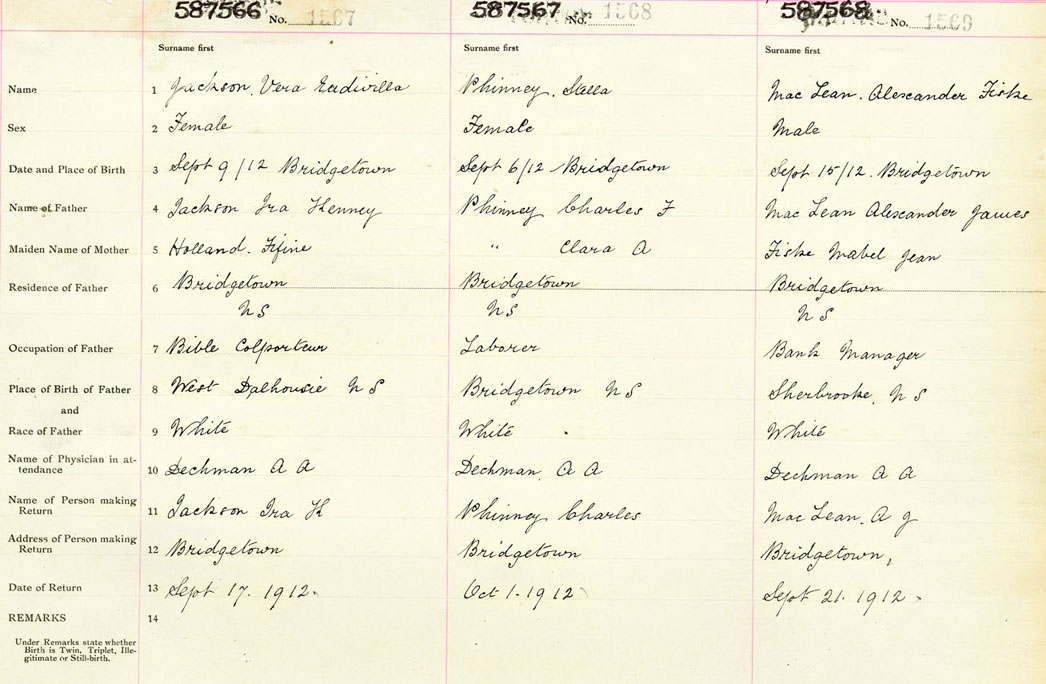 587566 No. 1567 587567 No. 1568 587568 No. 1569
Surname first Surname first Surname first
Name 1 Jackson, Vera Phinney, Stella Mac Lean. Alexander Fiske
Sex 2 Female Female Male
Date and Place of Birth 3 Sept 9/12 Bridgetown Sept 6/12 Bridgetown Sept 15/12. Bridgetown
Name of Father 4 Jackson Ira Kenney Phinney Charles F Mac Lean Alexander James
Maiden Name of Mother 5 Holland. Fifine " Clara A Fiske Mabel Jean
Residence of Father 6 Bridgetown Bridgetown Bridgetown
N S N S N S
Occupation of Father 7 Bible Colporteur Laborer Bank Manager
Place of Birth of Father 8 West Dalhousie N S Bridgetown N S Sherbrooke, N S
and
Race of Father 9 White White White
Name of Physician in at-
tendance 10 Dechman A A Dechman, A A Dechman A A
Name of Person making
Return 11 Jackson Ira K Phinney Charles Mac Lean, A J
Address of Person making
Return 12 Bridgetown Bridgetown Bridgetown,
Date of Return 13 Sept 17. 1912. Oct 1-1912 Sept 21. 1912.
REMARKS 14
Under Remarks state whether
Birth is Twin, Triplet, Ille-
gitimate or Still-birth.